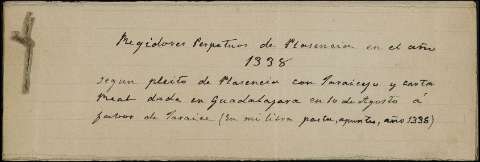 Regidores Perpetuos de Plasencia en el año
1338
segun pleito de Plasencia con Jaraicejo y carta
Real dada en Guadalajara en 10 de Agosto á
favor de Jaraice (En mi libro pasta, apuntes, año 1338)